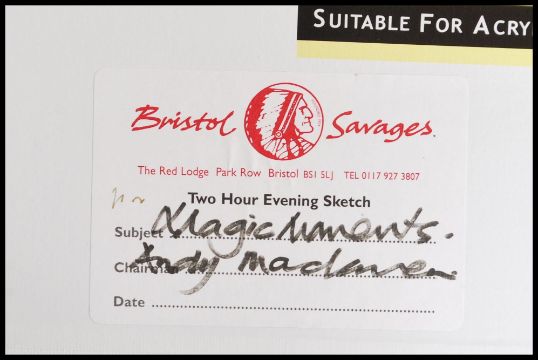 SUITABLE FOR ACRY
Bristol Savages.
The Red Lodge Park Row Bristol BS1 5LJ TEL 0117 927 3807
Two Hour Evening Sketch
Subject Magic Moments.
Chairman Andy
Date